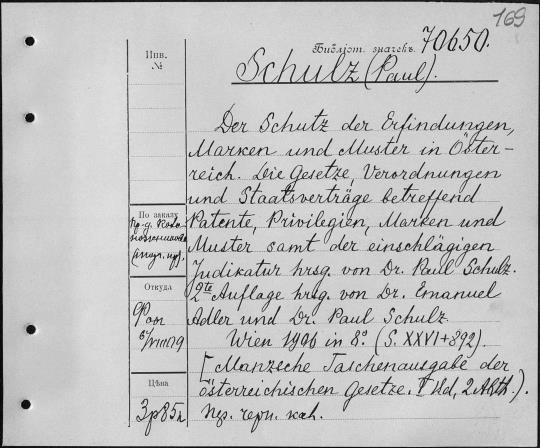 169
Библіот. значекъ. 70650.
Schulz (Paul).
Инв.
№
Der Schutz der Erfindungen,
Marken und Muster in Öster-
reich. Die Gesetze, Verordnungen
und Staatsverträge betreffend
Patente, Privilegien, Marken und
Muster samt der einschlägigen
Judikatur hrsg. von Dr. Paul Schulz.
2te Auflage hrsg. von Dr. Emanuel
Adler und Dr. Paul Schulz.
Wien 1906 in 8º. (S. XXVI+892).
[Manzsche Taschenausgabe der
österreichischen Gesetze. Bd, 2. Abth.).
По заказу
Откуда
Цѣна
3р85к